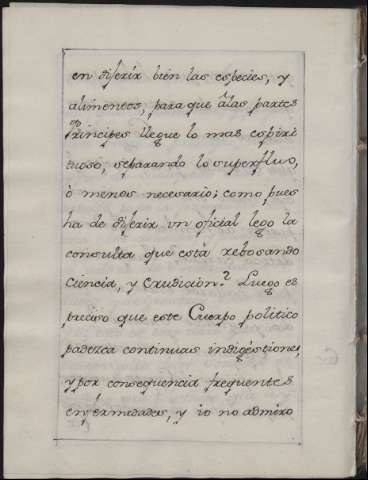 en diferir bien las especies, y
alimentos, para que â las partes
Principes llegue lo mas espiri
tuoso, separando lo superfluo,
ò menos necesario; como pues
ha de diferir vn oficial lego la
consulta que está rebosando
Ciencia, y Erudicion? Luego es
preciso que este Cuerpo politico
padezca continuas indigestiones,
y por consequencia frequentes
enfermedades, y io no admiro